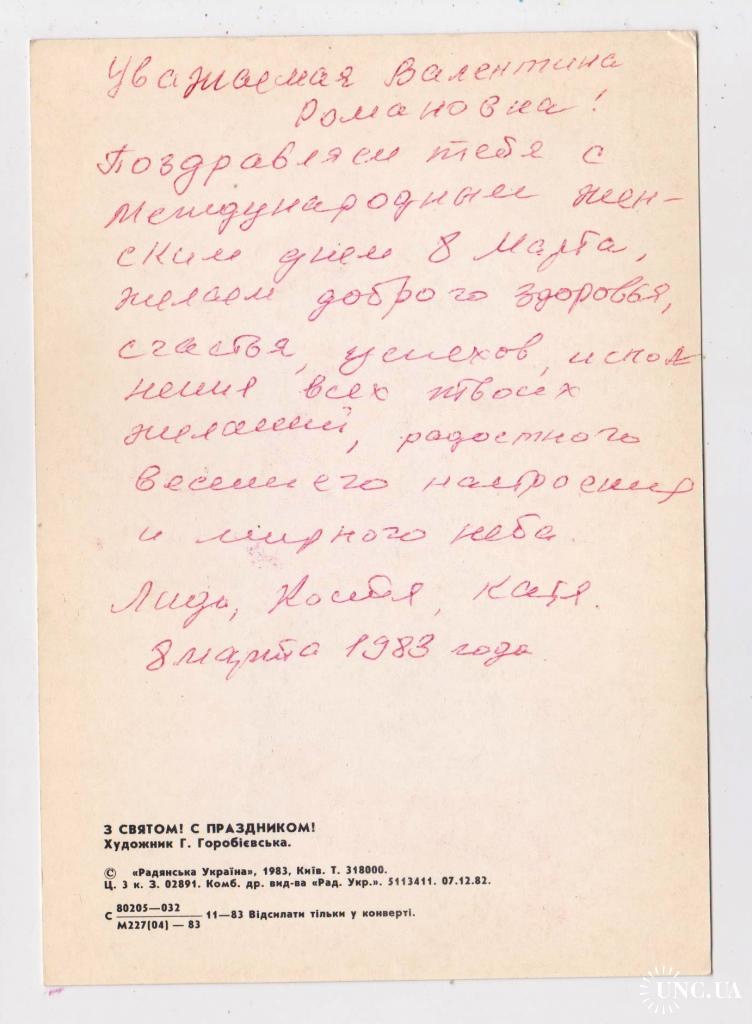 Уважаемая Валентина
Романовна!
Поздравляем тебя с
Международным жен-
ским днем 8 Марта,
желаем доброго здоровья,
счастья, успехов, испол
нения всех твоих
желаний, радостного
весеннего настроения
и мирного неба.
Лида, Костя, Катя.
8 марта 1983 года.
З СВЯТОМ! С ПРАЗДНИКОМ!
Художник Г. Горобієвська.
© «Радянська Україна», 1983, Київ. Т. 318000.
Ц. 3 к. З. 02891. Комб. др. вид-ва «Рад. Укр.». 5113411. 07.12.82.
С 80205—032
М227(04) — 83 11—83 Відсилати тільки у конверті.
UNC.UA